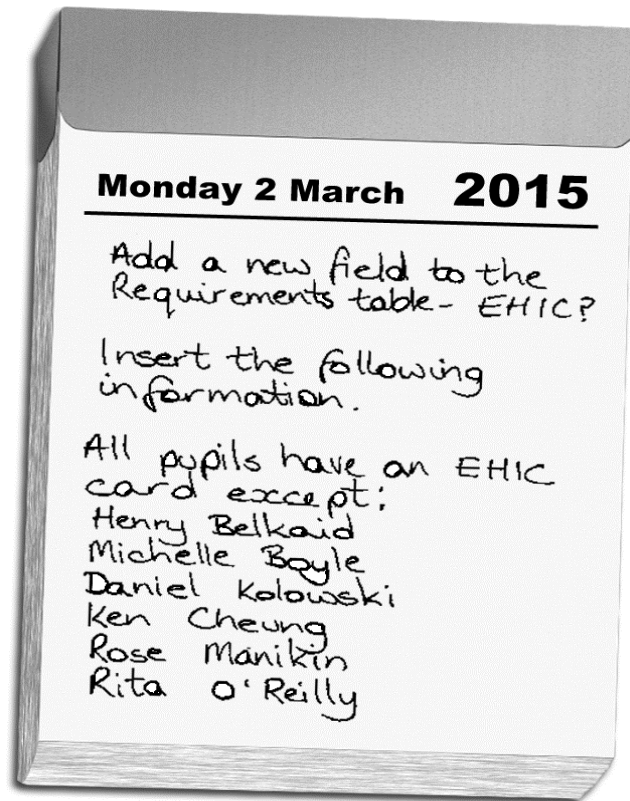 Monday 2 March 2015
Add a new field to the
Requirements table - EHIC?
Insert the following
information.
All pupils have an EHIC
card except:
Henry Belkaid
Michelle Boyle
Daniel Kolowski
Ken Cheung
Rose Manikin
Rita O'Reilly